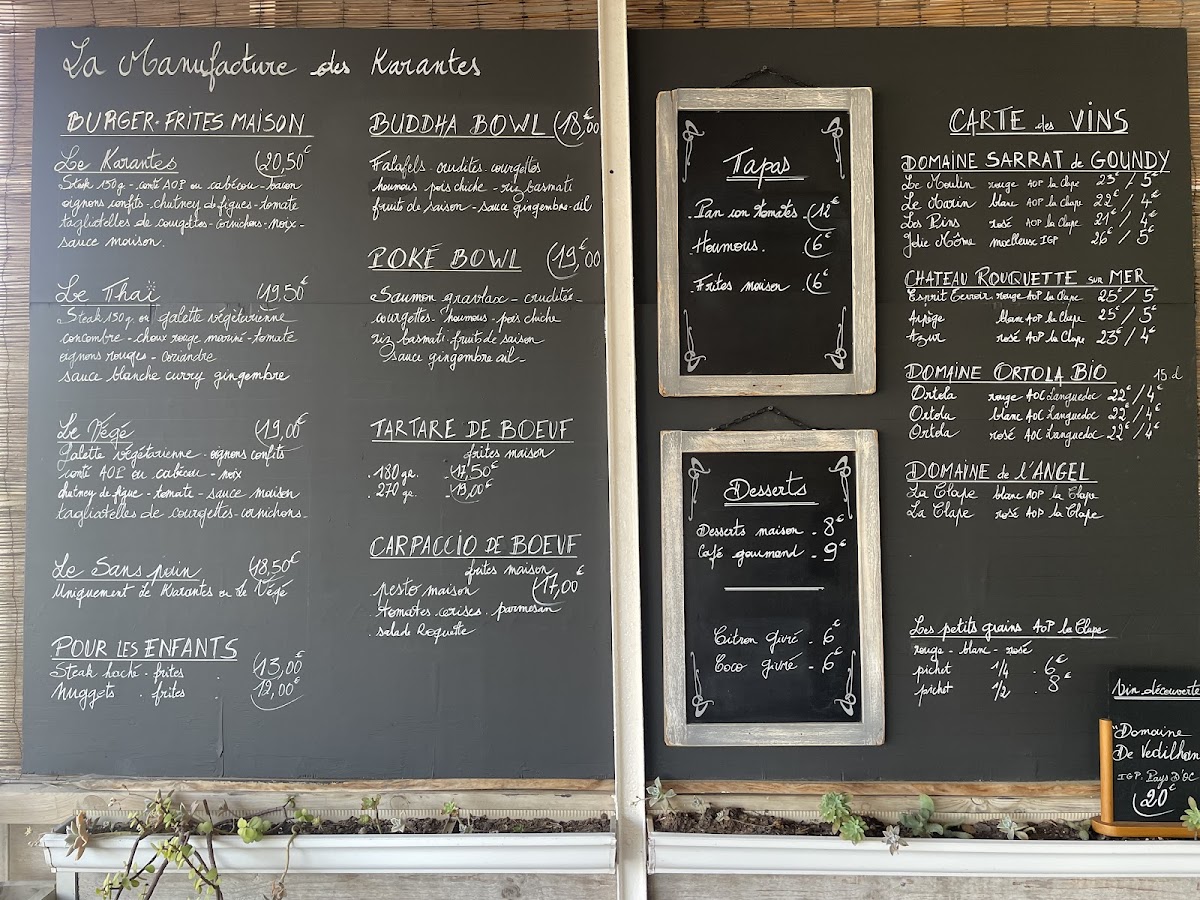 La Manufacture des Karantes
BURGER-FRITES MAISON
Le Karantes 20,50€
Steak 150g - comté AOP ou cabécou - bacon
oignons confits - chutney de figues - tomate
tagliatelles de courgettes - cornichons - noix -
sauce maison.
Le Thaï 19,50€
Steak 150g. ou galette végétarienne
concombre - choux rouge mariné - tomate
oignons rouges - coriandre
sauce blanche curry gingembre
Le Végé 19,00€
Galette végétarienne - oignons confits
comté AOP ou cabécou - noix
chutney de figue - tomate - sauce maison
tagliatelles de courgettes - cornichons.
Le Sans pain 18,50€
Uniquement Le Karantes ou Le Végé
POUR LES ENFANTS
Steak haché - frites . 13,00€
Nuggets . frites . 12,00€
BUDDHA BOWL 18,00€
Falafels - crudités - courgettes
houmous pois chiche - riz basmati
fruits de saison - sauce gingembre-ail
POKÉ BOWL 19,00€
Saumon gravlax - crudités -
courgettes - houmous - pois chiche
riz basmati - fruits de saison
sauce gingembre ail -
TARTARE DE BOEUF
frites maison
. 180 gr. . 17,50€
. 270 gr. . 19,00€
CARPACCIO DE BOEUF
frites maison
. pesto maison 17,00€
. tomates cerises . parmesan
. salade Roquette
Tapas
. Pan con tomates . 12€
. Houmous . 6€
. Frites maison . 6€
Desserts
Desserts maison . 8€
Café gourmand . 9€
Citron givré . 6€
Coco givré . 6€
CARTE des VINS
DOMAINE SARRAT de GOUNDY
Le Moulin rouge AOP la Clape 23€ / 5€
Le Marin blanc AOP la Clape 22€ / 4€
Les Pins rosé AOP la Clape 21€ / 4€
Jolie Môme moelleux IGP 26€ / 5€
CHATEAU ROUQUETTE sur MER
Esprit Terroir rouge AOP la Clape 25€ / 5€
Arpège blanc AOP la Clape 25€ / 5€
Azur rosé AOP la Clape 23€ / 4€
DOMAINE ORTOLA BIO 15.d
Ortola rouge AOC Languedoc 22€ / 4€
Ortola blanc AOC Languedoc 22€ / 4€
Ortola rosé AOC Languedoc 22€ / 4€
DOMAINE de l'ANGEL
La Clape blanc AOP la Clape
La Clape rosé AOP la Clape
Les petits grains AOP la Clape
rouge - blanc - rosé
pichet 1/4 . 6€
pichet 1/2 . 8€
Vin découverte
"Domaine
De Vedilhan
IGP. Pays D'OC
20€